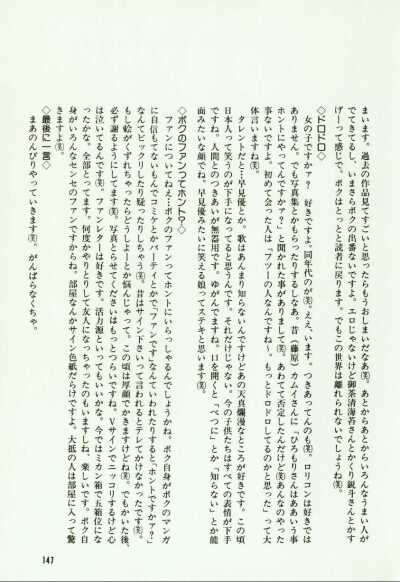 まいます。過去の作品見てすごいと思ったらもうおしまいだなあ(笑)。あとからあとからいろんなうまい人が
でてきてるし、いまさらボクの出番ないですよ。エロじゃないけど御茶漬海苔さんとかくり鋭斗さんとかす
げーって感じで、ボクはとっとと読者に戻ります。でもこの世界は離れられないでしょうね(笑)。
◇ドロドロ◇
女の子ですかァ? 好きですよ。同年代のが(笑)。ええ、います。つきあってんのも(笑)。ロリコンは好きでは
ありません。でも写真集とかもらったりするしなあ。昔、藤原 カムイさんに「ひろもりさんはああいう事
ホントにやってんですかァ?」と聞かれた事がありまして(笑)。あわてて否定したんだけど(笑)あんなのやった
事ないですよ。初めて会った人は「フツーの人なんですねー。もっとドロドロしてるのかと思った」って大
体言いますね(笑)。
タレントだと…早見優とか。歌はあんまり知らないんですけどあの天真爛漫なところが好きです。この頃
日本人って笑うのが下手になってると思うんです。それだけじゃない。今の子供たちはすべての表情が下手
ですね。人間とのつきあいが無器用です。ゆがんでますね。口を開くと「べつに」とか「知らない」とか能
面みたいな顔でね。早見優みたいに笑える娘ってステキと思います(笑)。
◇ボクのファンってホントの◇
ファンについてねえ…ボクのファンってホントにいらっしゃるんでしょうかね。ボク自身がボクのマンガ
に自信もてないもんでコミケとかパーティとかで「ファンです」なんていわれたりすると、ホントですかァ?
なんてビックリしたり疑ったりしちゃう(笑)。昔はサイン下さいって言われるとテレてかけなかったですね。
もし絵がくずれちゃったらどうしよーとか悩んじゃって。この頃は厚顔でかきますけどね(笑)。でもかいた後、
必ず謝るようにしてます(笑)。写真とらせてくださいはもっとつらいですね。Vサインでニッコリするけど心
は泣いてるんです(笑)。ファンレターは好きです。活力源っていってもいいかな。今ではミカン箱で五箱位にな
ったかな。全部とってます。何度かやりとりして友人になっちゃったのもいますしね。楽しいです。ボク自
身がいろんなセンセのファンですからね。部屋なんかサイン色紙だらけですよ。大抵の人は部屋に入って驚
きますよ(笑)。
◇最後に一言◇
まあのんびりやっていきます(笑)。がんばらなくちゃ。
147